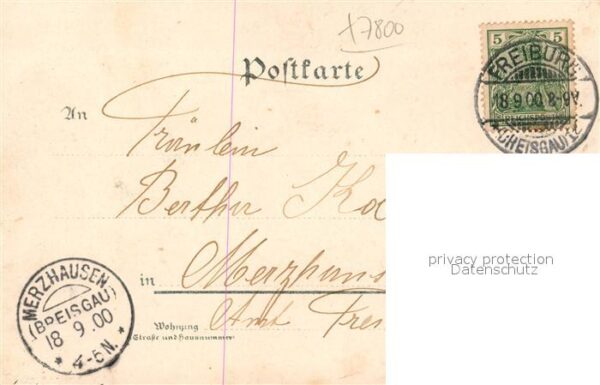 +7800
5 5
FREIBURG
18.9.00.8-9V.
(BREISGAU)
REICHSPOST
Postkarte
An
Fräulein
Bertha
in Merzhaus
Amt Frei
Wohnung
Straße und Hausnummer
MERZHAUSEN
(BREISGAU)
18 9.00
* 4-5N. *
privacy protection
Datenschutz